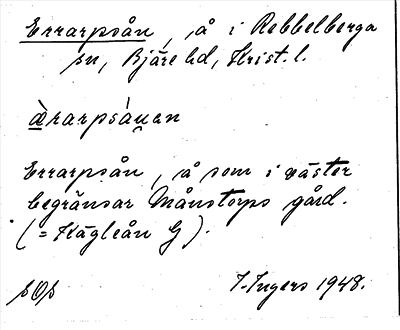 Errarpsån, å i Rebbelberga
sn, Bjäre hd, Krist. l.
ὰrarpsá​u̯en
Errarpsån, å som i väster
begränsar Månstorps gård.
(= Kägleån G).
sOs
I. Ingers 1948.